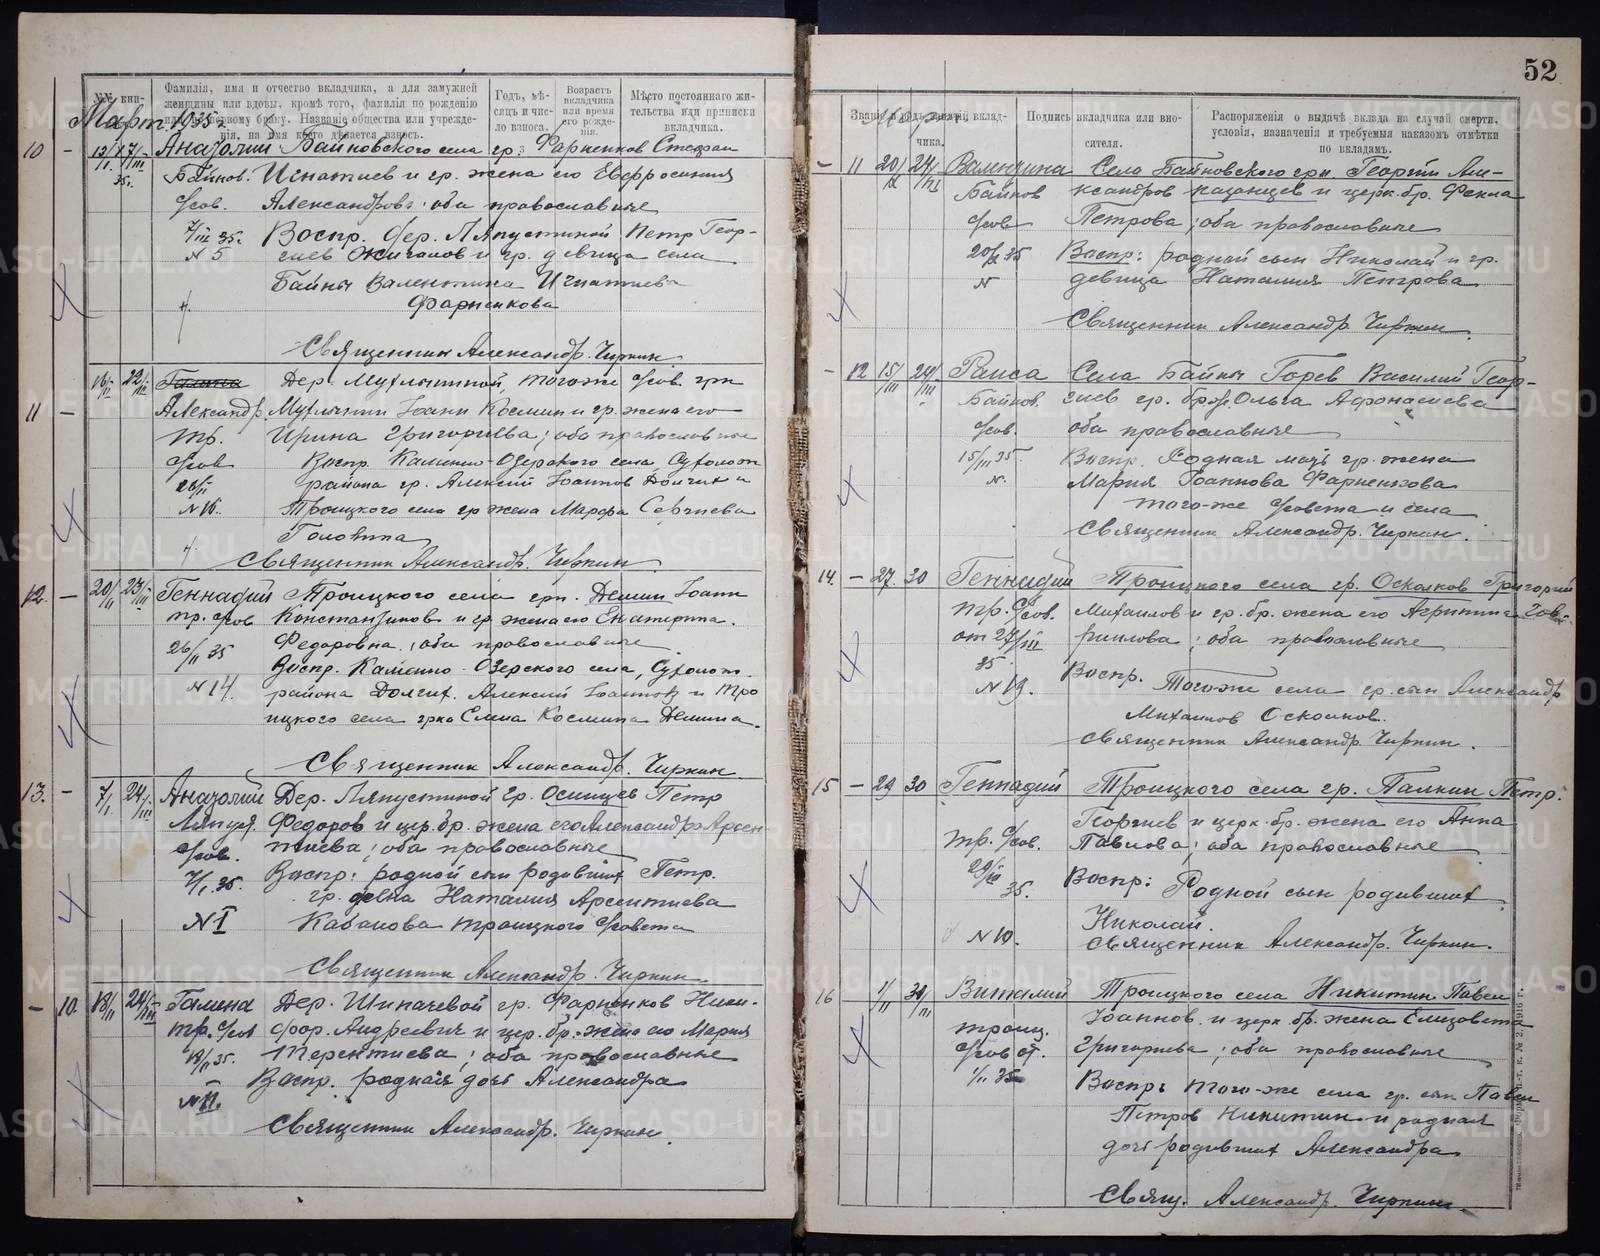 52
№№ кни-
Фамилія, имя и отчество вкладчика, а для замужней
женщины или вдовы, кромѣ того, фамилія по рожденію
первому браку. Названіе общества или учрежде-
нія, на имя кого дѣлается взносъ.
Годъ, мѣ-
сяцъ и чис-
ло взноса.
Возрастъ
вкладчика
или время
его рожде-
нія.
Мѣсто постояннаго жи-
тельства или приписки
вкладчика.
Март 1935
10 - 17/III Анатолий Байновского села гр. Фарненков Стефан
35 г. Байнов. Игнатиев и гр. жена его Евфросиния
Сов. Александрова; оба православные
7/III 35 г. Воспр. дер. Ляпустиной Петр Геор-
N 5 гиев и гр. девица села
Байны Валентина Игнатиева
Фарненкова
Священник Александр. Чиркин
11 - 16/II 22/III Галина Дер. Мухлыниной, того же Сов. грн
Александр. Мухлынин Иоанн Космин и гр. жена его
тр. Ирина Григориева; оба православные
Сов Воспр. Каменно-Озерского села, Сухолож
района гр. Алексий Иоаннов Долгих и
N 16. Троицкого села гр жена Марфа Сергиева
Священник Александр. Чиркин
12. - 20/II 23/III Геннадий Троицкого села грн. Демин Иоанн
тр. сов Константинов и гр. жена его Екатерина
Федоровна; оба православные
26/II 35 Воспр. Каменно-Озерского села, Сухолож.
N 14. района Долгих. Алексий Иоаннов и Тро
ицкого села грка Елена Космина Демина.
Священник Александр. Чиркин
13. - 7/I 24/III Анатолий Дер. Ляпустиной гр. Осинцев Петр
Ляпуст. Федоров и цер. бр. жена его Александра Арсен
Сов. тиева; оба православные
7/I 35. Воспр: родной сын родивших Петр.
гр. девка Наталия Арсентиева
N I Кабакова Троицкого Совета
Священник Александр. Чиркин
- 10. 18/II 24/III Галина Дер. Шипачевой гр. Фарненков Ники-
тр. Сов фор. Андреевич и цер. бр. жена его Мария
18/II 35. Терентиева; оба православные
N 11. Воспр. родная доч Александра
Священник Александр. Чиркин
Званіе
вклад-
чика.
Подпись вкладчика или вно-
сителя.
Распоряженія о выдачѣ вклада на случай смерти,
условія, назначенія и требуемыя наказомъ отмѣтки
по вкладамъ.
Март
- 11 24/III Валентина Села Байновского грн. Георгий Але-
Байнов ксандров Казанцев и церк. бр. Фекла
Сов Петрова; оба православные
35 Воспр: родной сын Николай и гр.
N девица Наталия Петрова
Священник Александр. Чиркин.
- 12 15/III 24/III Раиса Села Байны Горев Василий Геор-
Байнов. гиев гр. бр. Ольга Афонасиева
Сов. оба православные
15/III 35. Воспр. Родная мать гр. жена
N. Мария Иоаннова Фарненкова
того-же Совета и села
Священник Александр. Чиркин.
14. - 27. 30 Геннадий Троицкого села гр. Осколков Григорий
тр. Сов. Михаилов и гр. бр. жена его Агрипина Гав-
от 27/III риилова; оба православные
35. Воспр. Того-же села гр. сын Александр
N 19. Михаилов Осколков.
Священник Александр. Чиркин.
15 - 29 30 Геннадий Троицкого села гр. Палкин Петр.
Георгиев и церк. бр. жена его Анна
тр. Сов. Павлова; оба православные
29/III 35. Воспр: Родной сын родивших
Николай.
N 10. Священник Александр. Чиркин.
16 1/II 30/III Виталий Троицкого села Никитин Павел
Троиц. Иоаннов. и церк. бр. жена Елизовета
Сов от. Григориева; оба православные
1/II 35 Воспр: того-же села гр. сын Павел
Петров Никитин и родная
доч родивших Александра
Свящ. Александр. Чиркин.
METRIKI.GASO-URAL.RU